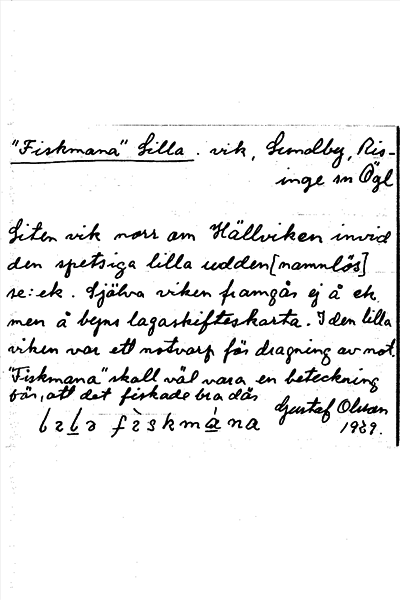 "Fiskmana" Lilla. vik, Sundby, Ris-
inge sn Ögl
Liten vik norr om Hällviken invid
den spetsiga lilla udden [namnlös]
se: ek. Själva viken framgår ej å ek.
men å byns lagaskifteskarta. I den lilla
viken var ett notvarp för dragning av not.
"Fiskmana" skall väl vara en beteckning
för, att det fiskade bra där
Gustaf Olsson
1939.
fiskmána